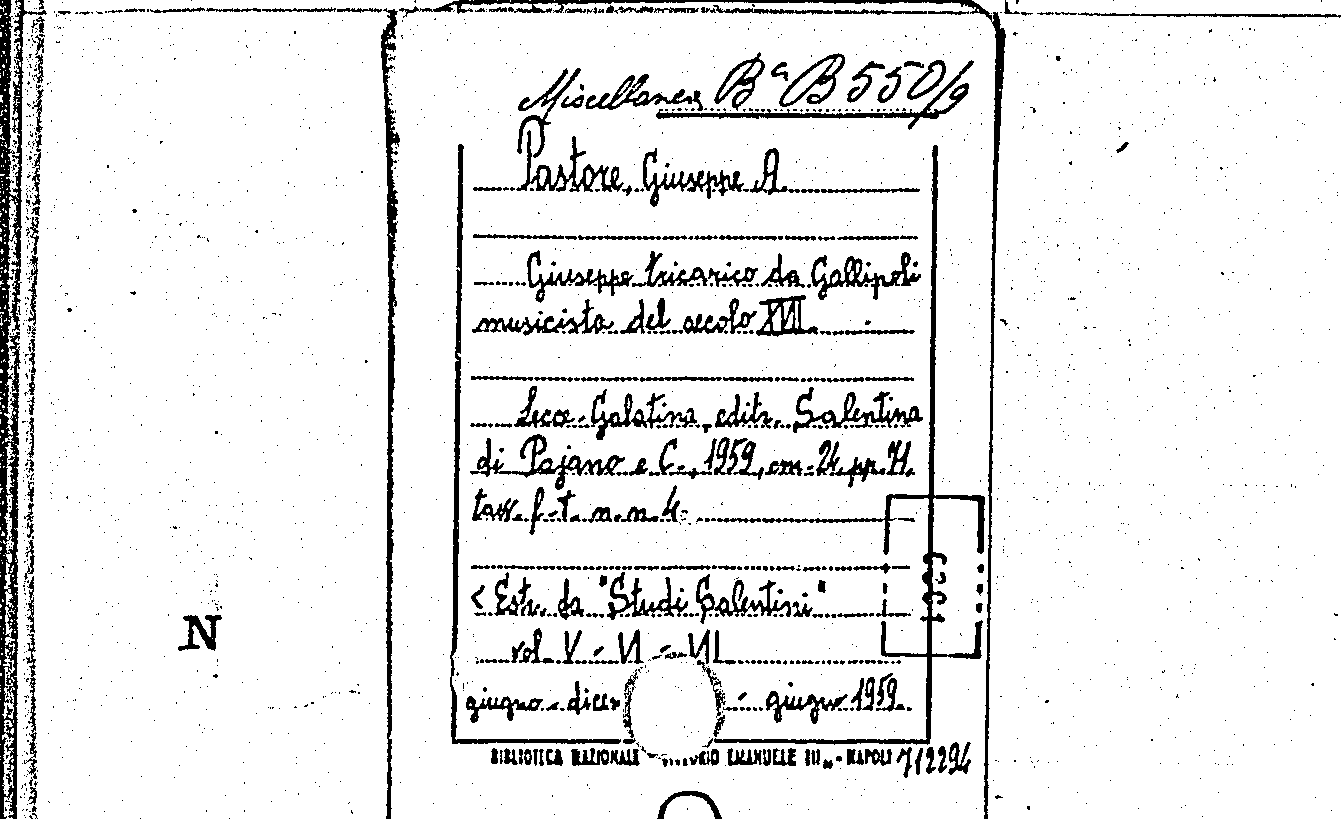 Miscellanea Bª B 550/9
Pastore, Giuseppe A.
Giuseppe tricarico da Gallipoli
musicista del secolo XVII.
Lecce-Galatina, editr. Salentina
di Pajano e C., 1959, cm. 24, pp. 71.
tav. f. t. n. n. 4.
< Estr. da "Studi Salentini"
vol. V - VI - VII
giugno - dice - giugno 1959.
N
BIBLIOTECA NAZIONALE EMANUELE III - NAPOLI 712294